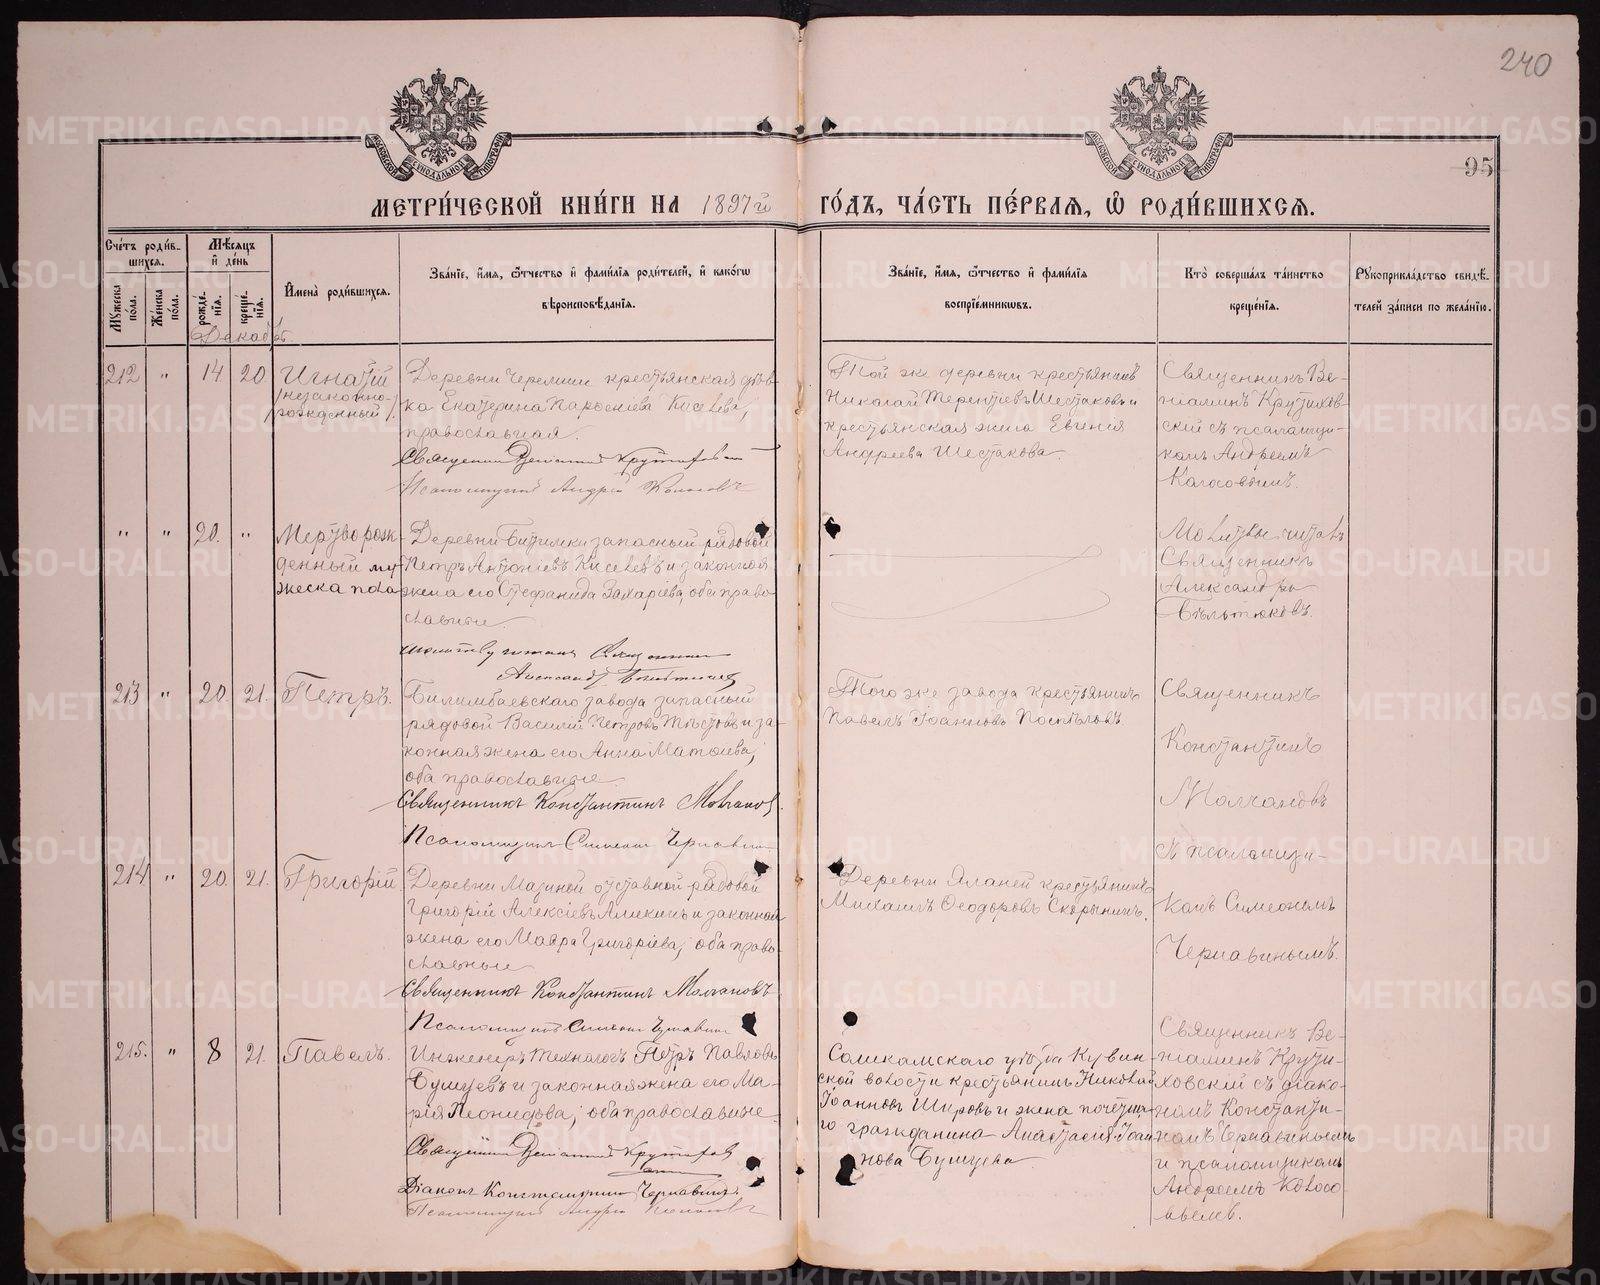 240
95
МЕТРИ́ЧЕСКОЙ КНИ́ГИ НА 1897й ГО́ДЪ, ЧА́СТЬ ПЕ́РВАЯ, Ѡ РОДИ́ВШИХСЯ.
Сче́тъ роди́в-
шихся.
Му́жеска по́ла.
Же́нска по́ла.
Мѣ́сяцъ и де́нь
рожде́-
нія.
креще́-
нія.
Имена̀ роди́вшихся.
Зва́ніе, и́мя, ѻ҆́тчество и фами́лія роди́телей, и како́гѡ
вѣроисповѣ́данія.
Зва́ніе, и́мя, ѻ҆́тчество и фами́лія
воспріе́мниковъ.
Кто̀ соверша́лъ та́инство
креще́нія.
Рꙋкоприкла́дство свидѣ́-
телей за́писи по жела́нію.
Декабрь
212 " 14 20
Игнатій
/незаконно-
рожденный/
Деревни Черемши крестьянская дѣв-
ка Екатерина Парѳеніева Киселева,
православная.
Священникъ Веніаминъ Крутиховскій
Псаломщикъ Андрей Колосовъ
Той же деревни крестьянинъ
Николай Терентіевъ Шестаковъ и
крестьянская жена Евгенія
Андреева Шестакова.
Священникъ Ве-
ніаминъ Крутихов-
скій съ псаломщи-
комъ Андреемъ
Колосовымъ.
" " 20. "
Мертворож-
денный му-
жеска пола
Деревни Битимки запасный рядовой
Петръ Антоніевъ Киселевъ и законная
жена его Стефанида Захаріева, оба право-
славные.
молитву читалъ Священникъ
Александръ Бѣльтюковъ
Молитвы читалъ
Священникъ
Александръ
Бѣльтюковъ.
213 " 20. 21.
Петръ.
Билимбаевскаго завода запасный
рядовой Василій Петровъ и за-
конная жена его Анна Матѳіева,
оба православные
Священникъ Константинъ Молчановъ
Псаломщикъ Симеонъ Чернавинъ
Того же завода крестьянинъ
Павелъ Іоанновъ Поспѣловъ
Священникъ
Константинъ
Молчановъ
съ псаломщи-
комъ Симеономъ
Чернавинымъ.
214 " 20. 21.
Григорій
Деревни Мазиной отставной рядовой
Григорій Алексіевъ и законная
жена его Мавра Григоріева, оба право-
славные
Священникъ Константинъ Молчановъ
Псаломщикъ Симеонъ Чернавинъ
Деревни крестьянинъ
Михаилъ Ѳеодоровъ Скорынинъ.
215. " 8 21.
Павелъ.
Инженеръ Технологъ Петръ Павловъ
Бушуевъ и законная жена его Ма-
рія Леонидова, оба православные
Священникъ Веніаминъ Крутиховскій
Діаконъ Константинъ Чернавинъ.
Псаломщикъ Андрей Колосовъ
Соликамскаго уѣзда Кувин-
ской волости крестьянинъ Николай
Іоанновъ Шировъ и жена почетна-
го гражданина Анастасія Іоан-
нова Бушуева
Священникъ Ве-
ніаминъ Крути-
ховскій съ діако-
номъ Константи-
номъ Чернавинымъ
и псаломщикомъ
Андреемъ Колосо-
вымъ.